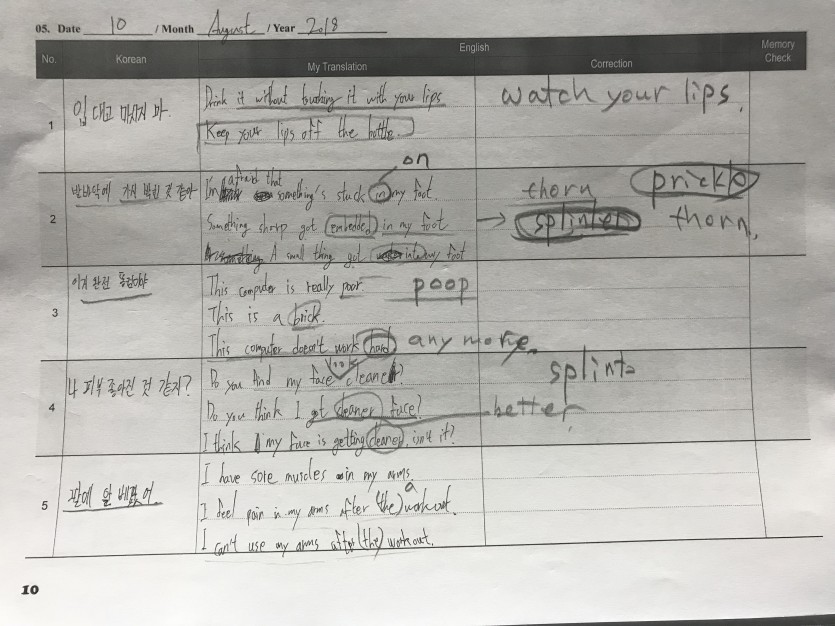 05. Date 10 / Month August / Year 2018
No. Korean English Memory Check
My Translation Correction
1 입 대고 마시지 마.
Drink it without touching it with your lips
Keep your lips off the bottle.
watch your lips.
on
2 발바닥에 가시 박힌 것 같아
I'm afraid that something's stuck in my foot.
Something sharp got embedded in my foot
A small thing got into my foot
thorn prickle
→ splinter thorn.
3 이거 완전 똥컴이야
This computer is really poor. poop
This is a brick.
This computer doesn't work hard any more.
4 나 피부 좋아진 것 같지?
look
Do you find my face cleaner?
Do you think I got cleaner face?
I think my face is getting cleaner, isn't it?
splint
better
5 팔에 알 배겼어
I have sore muscles in my arms.
a
I feel pain in my arms after (the) workout.
I can't use my arms after (the) workout.
10